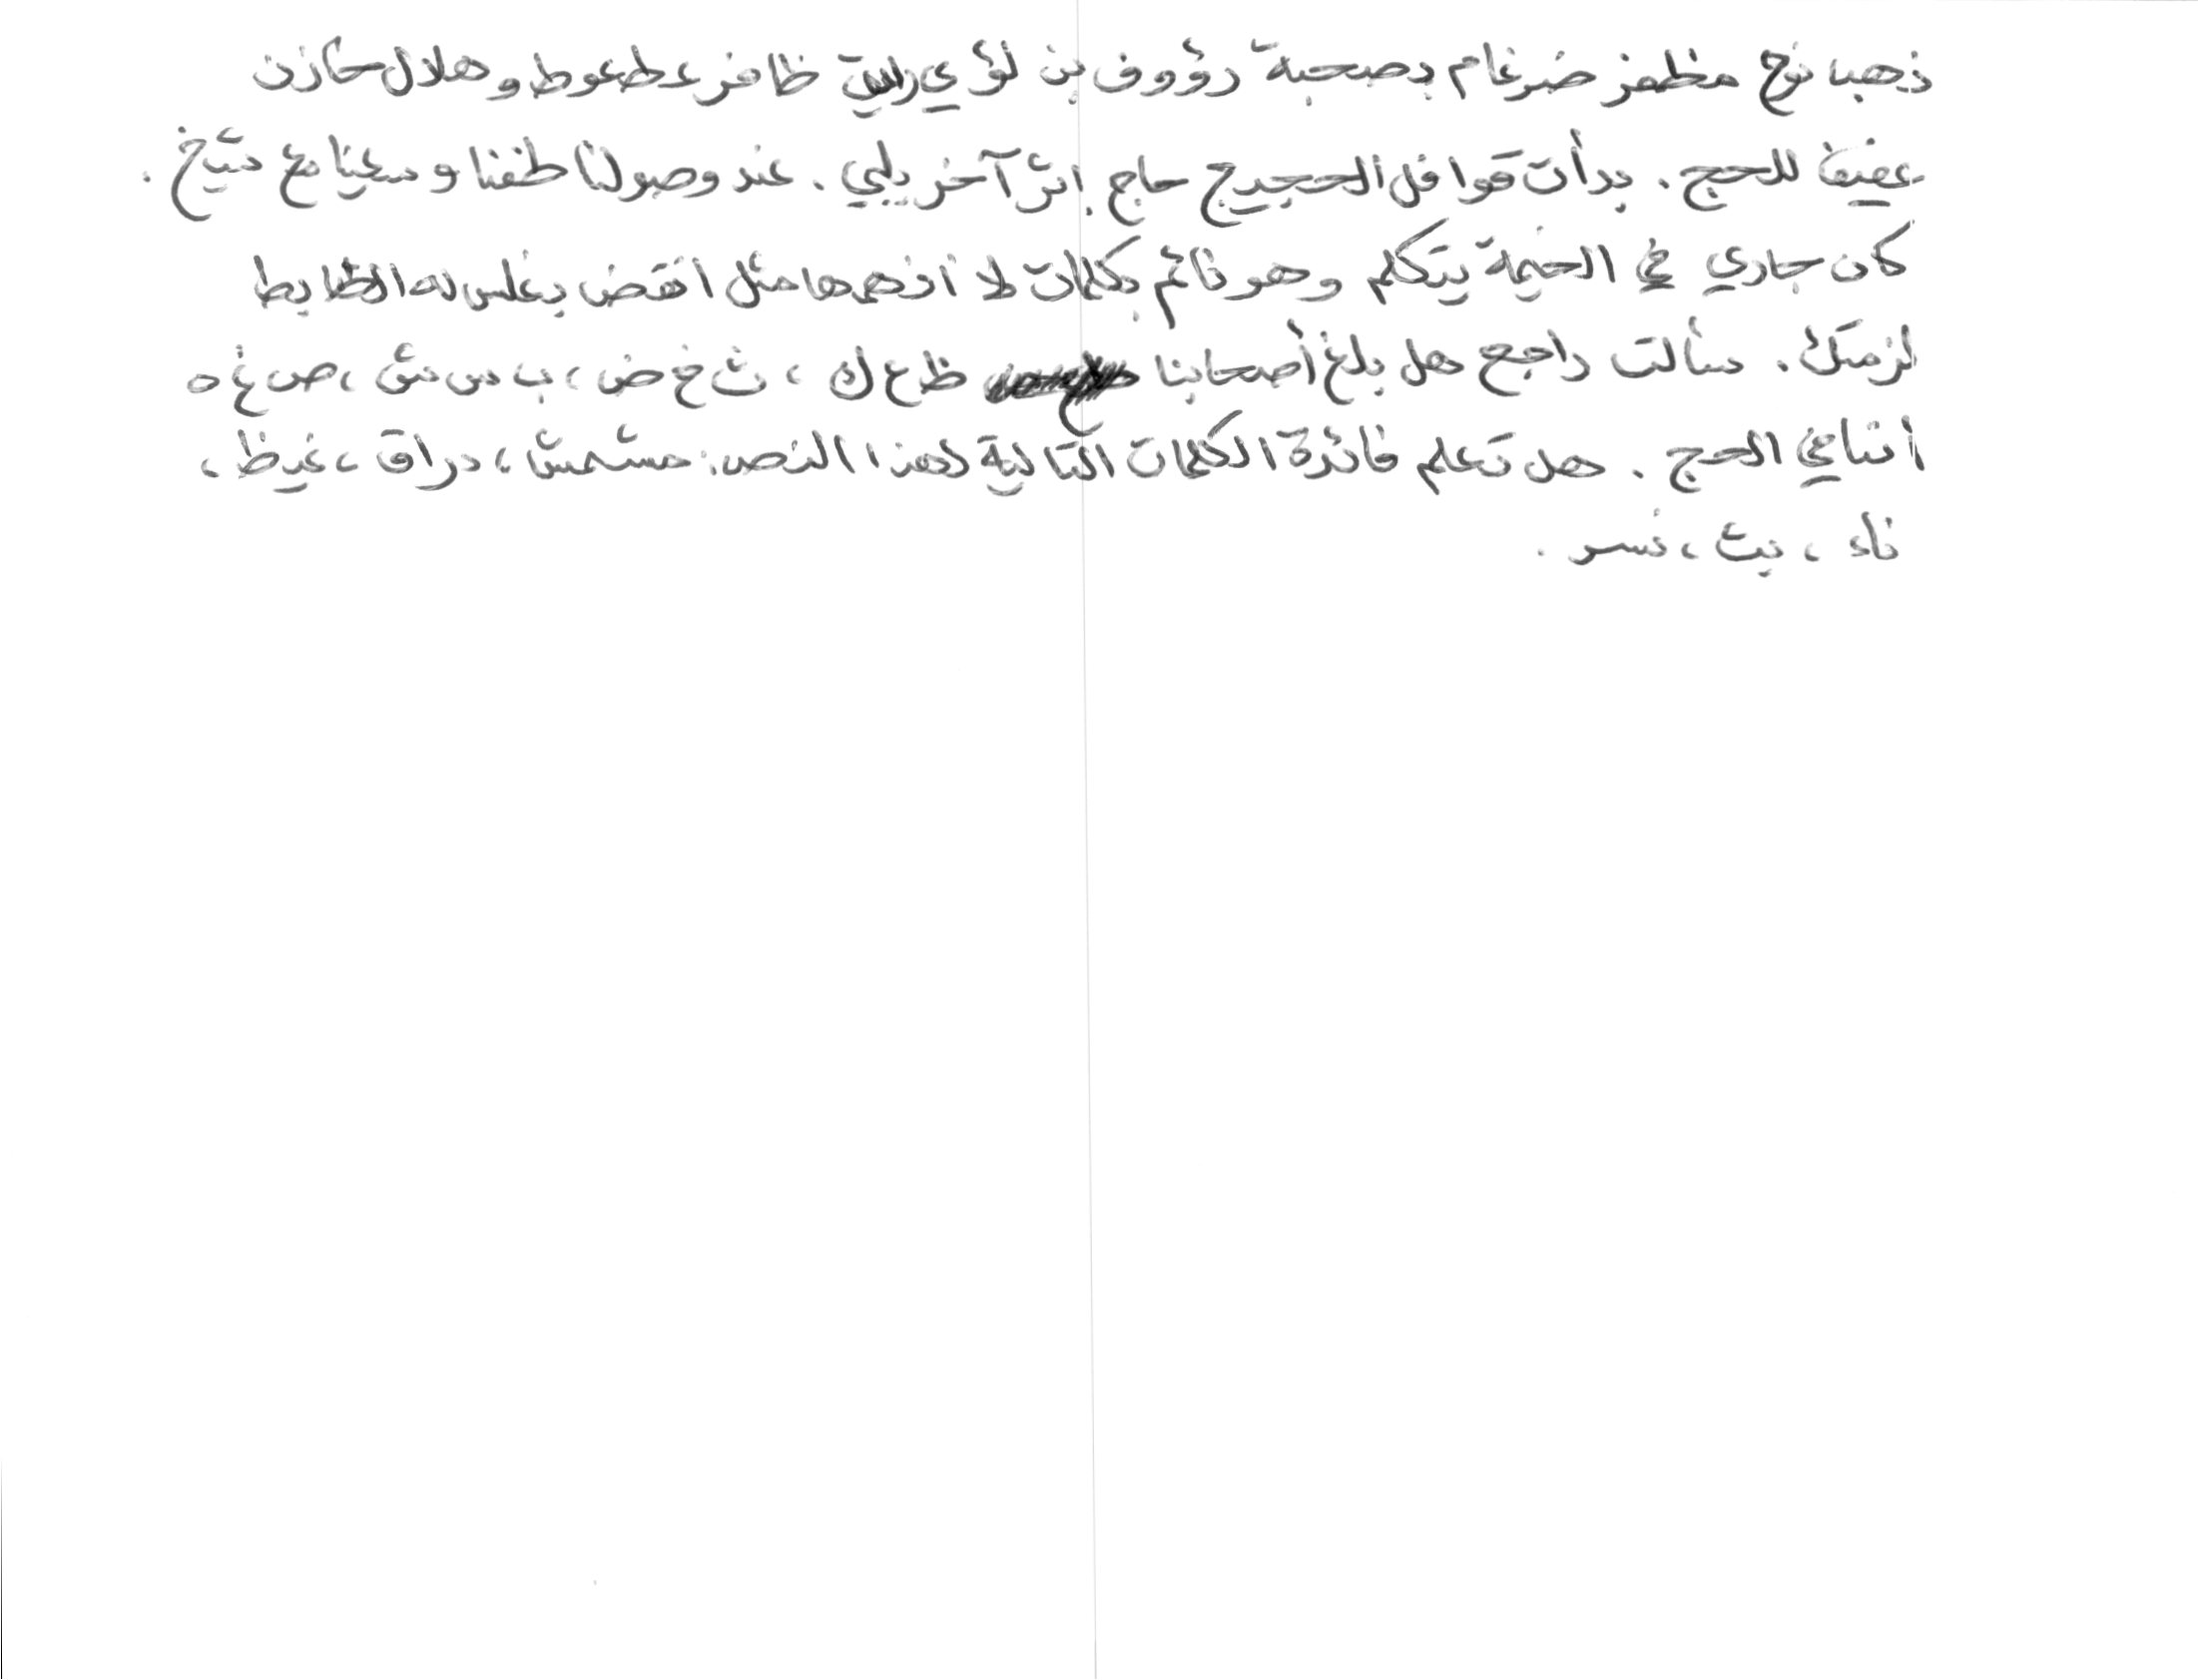 ذهبنا نوح مظفر ضرغام بصحبة رؤوف بن لؤي راجي ظافر عطعوط و هلال خازن
عفيفا للحج . بدأت قوافل الحجيج حاج إثر آخر يلبي . عند وصولنا طفنا و سعينا مع شيخ .
كان جاري في الخيمة يتكلم وهو نائم بكلمات لا أفهمها مثل انقض بغلس له الظابط
لزمتك . سألت راجح هل بلغ أصحابنا ظ ع ك ، ث خ ض ، ب س ش ، ص غ ه
أننا في الحج . هل تعلم فائدة الكلمات التالية لهذا النص : مستمش ، دراق ، غيظ ،
ناء ، بيث ، نسر .